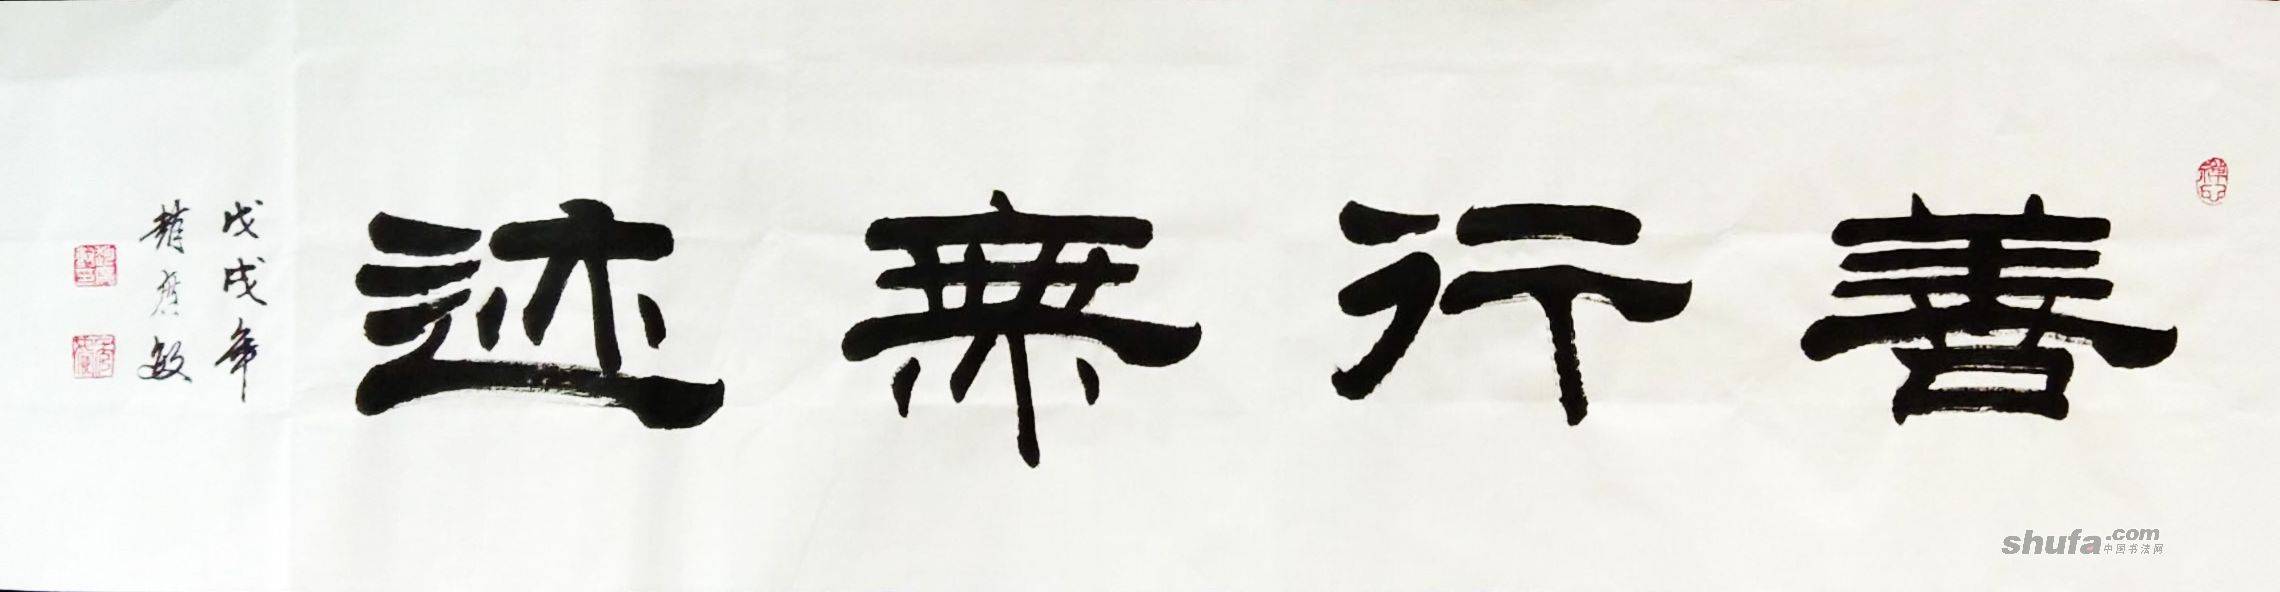 善行無迹
戊戌年
趙彦敏
shufa.com
中国书法网